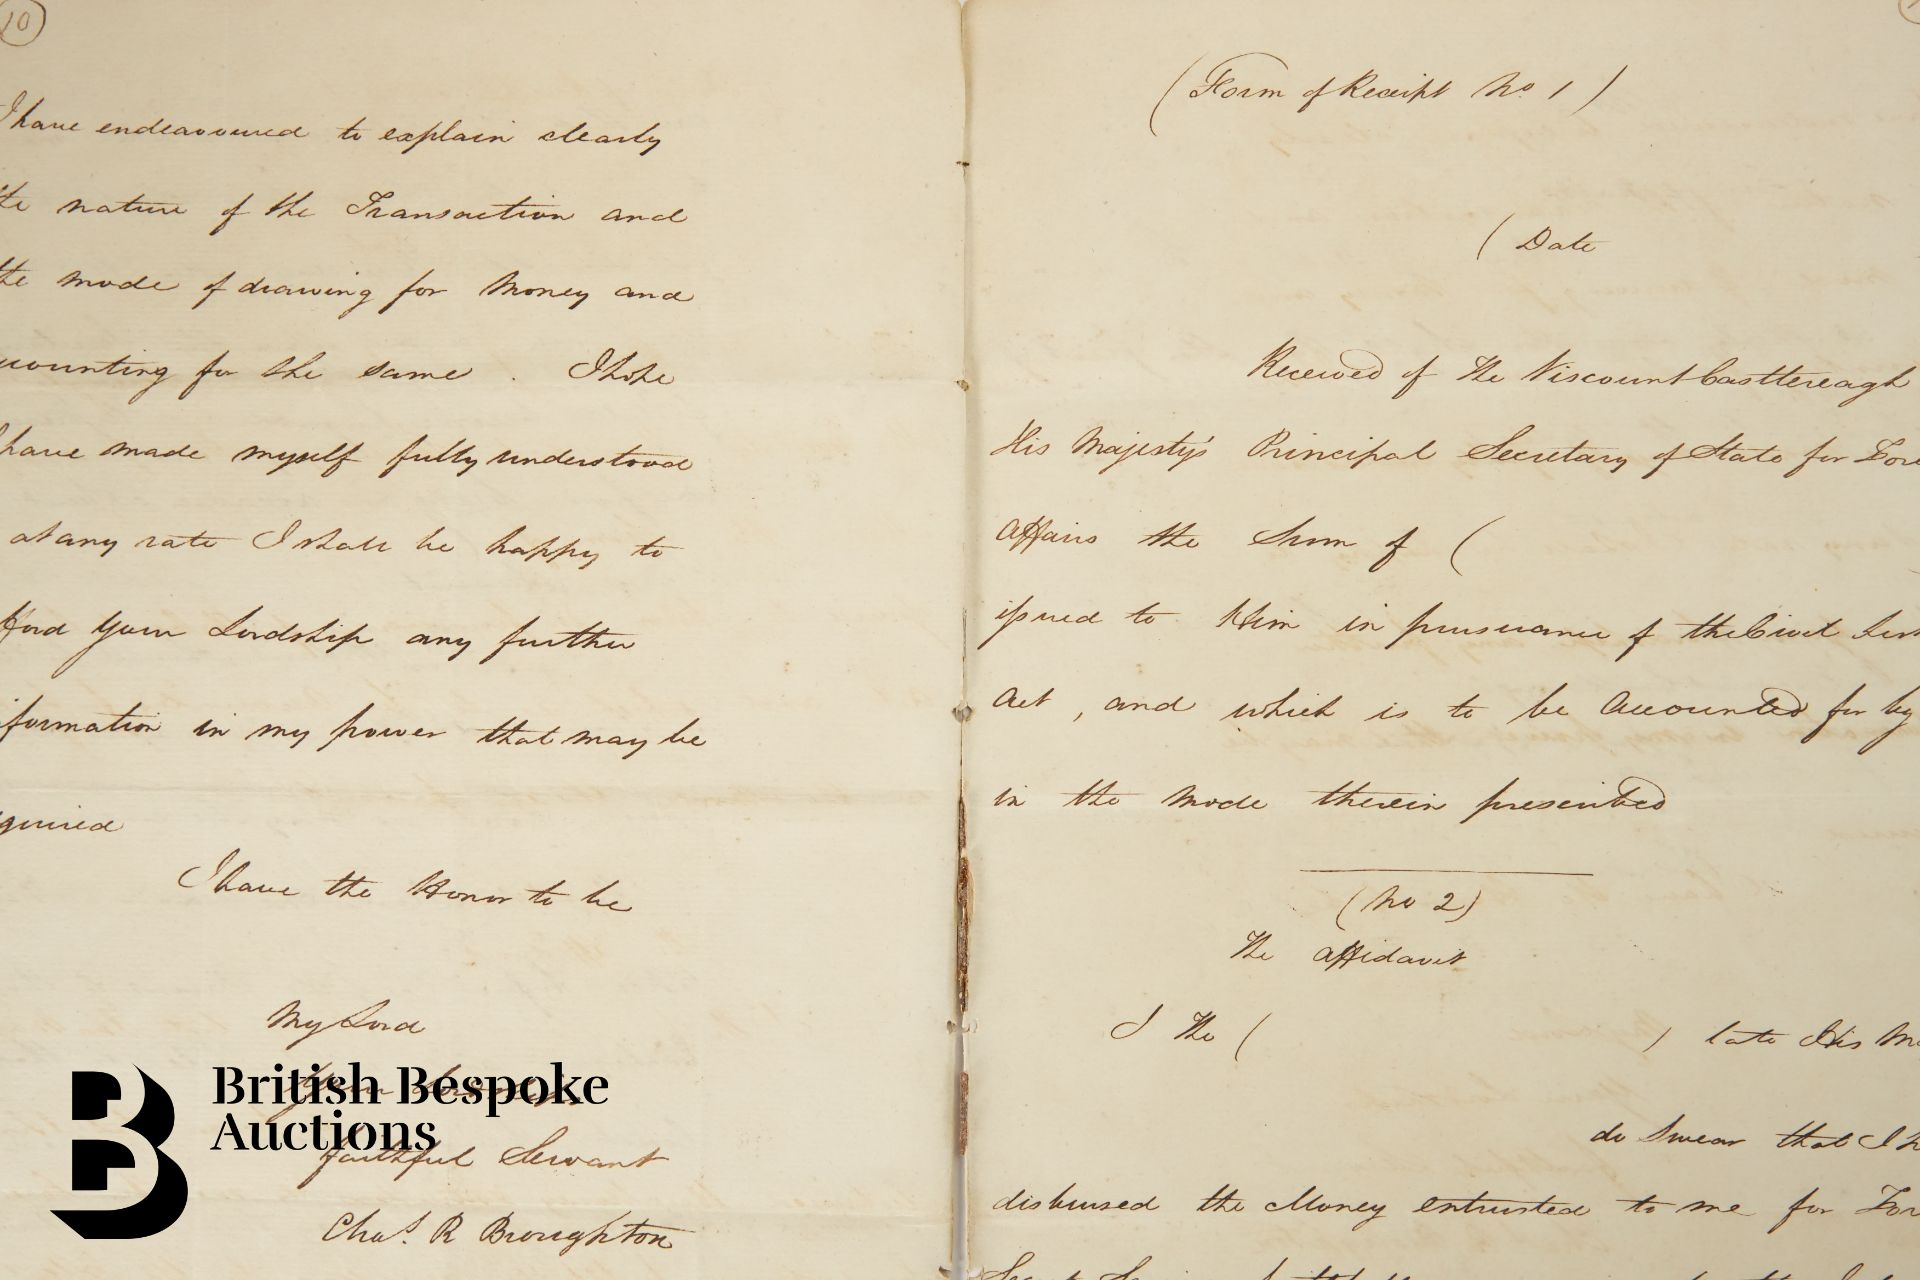 10
I have endeavoured to explain clearly
the nature of the Transaction and
the mode of drawing for Money and
counting for the same . I hope
I have made myself fully understood
at any rate I shall be happy to
fford your Lordship any further
formation in my power that may be
quired
I have the Honor to be
My Lord
Your Lordship's
faithful Servant
Chas. R Broughton
British Bespoke
Auctions
(Form of Receipt No. 1)
(Date
Received of The Viscount Castlereagh
His Majesty's Principal Secretary of State for Fore
Affairs the Sum of (
issued to Him in pursuance of the Civil List
Act , and which is to be Accounted for by
in the Mode therein prescribed
(No 2)
The Affidavit
I The ( ) late His M
do Swear that I h
disbursed the Money entrusted to me for For